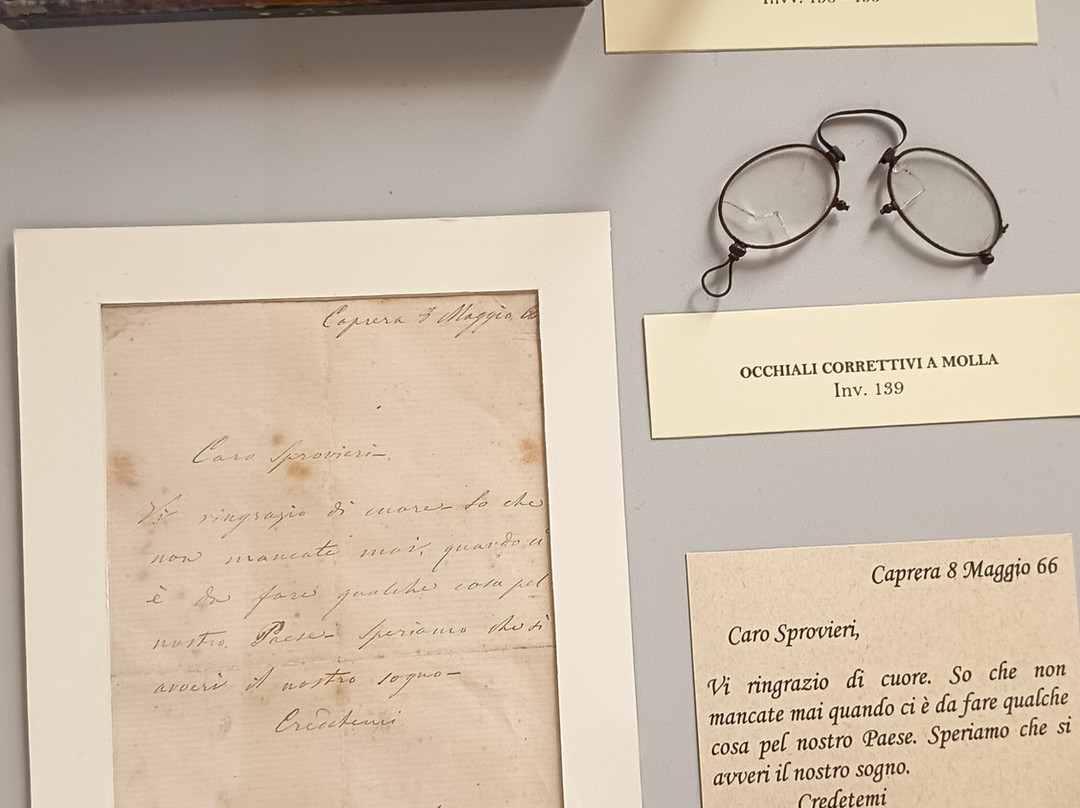 Caprera 8 Maggio 66
Caro Sprovieri.
Vi ringrazio di cuore. So che
non mancate mai, quando ci
è da fare qualche cosa pel
nostro Paese. Speriamo che si
averi il nostro sogno
Credetemi
OCCHIALI CORRETTIVI A MOLLA
Inv. 139
Caprera 8 Maggio 66
Caro Sprovieri,
Vi ringrazio di cuore. So che non
mancate mai quando ci è da fare qualche
cosa pel nostro Paese. Speriamo che si
avveri il nostro sogno.
Credetemi